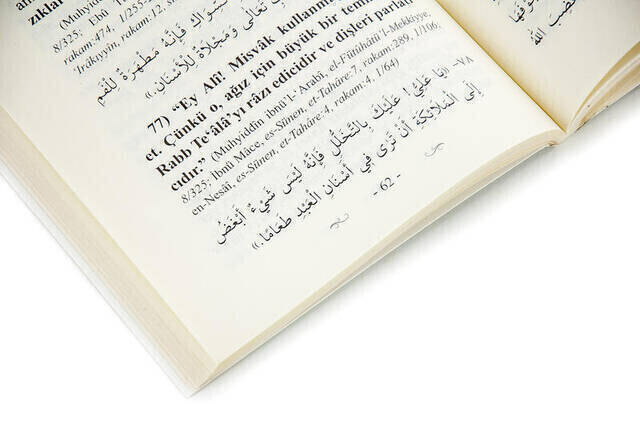 zıklar
8/325; Ebû
rakam:474, 1/255-
'Irâkıyyîn, rakam:12,
فَإِنَّهُ مَطْهَرَةٌ لِلْفَمِ
تَعَالَى وَمَجْلَاةٌ لِلْأَسْنَانِ.»
77) “Ey Alî! Misvâk kullanma
et. Çünkü o, ağız için büyük bir temiz
Rabb Te‘âlâ’yı râzı edicidir ve dişleri parlatı
cıdır.” (Muhyiddîn ibnü'l-Arabî, el-Fütûhâtü'l-Mekkiyye,
8/325; İbnü Mâce, es-Sünen, et-Tahâre:7, rakam:289, 1/106;
en-Nesâî, es-Sünen, et-Tahâre:4, rakam:4, 1/64)
٧٨- «يَا عَلِيُّ! عَلَيْكَ بِالتَّخَلُّلِ فَإِنَّهُ لَيْسَ شَيْءٌ أَبْغَضُ
إِلَى الْمَلَائِكَةِ أَنْ تَرَى فِي أَسْنَانِ الْعَبْدِ طَعَامًا.»
- 62 -
الله